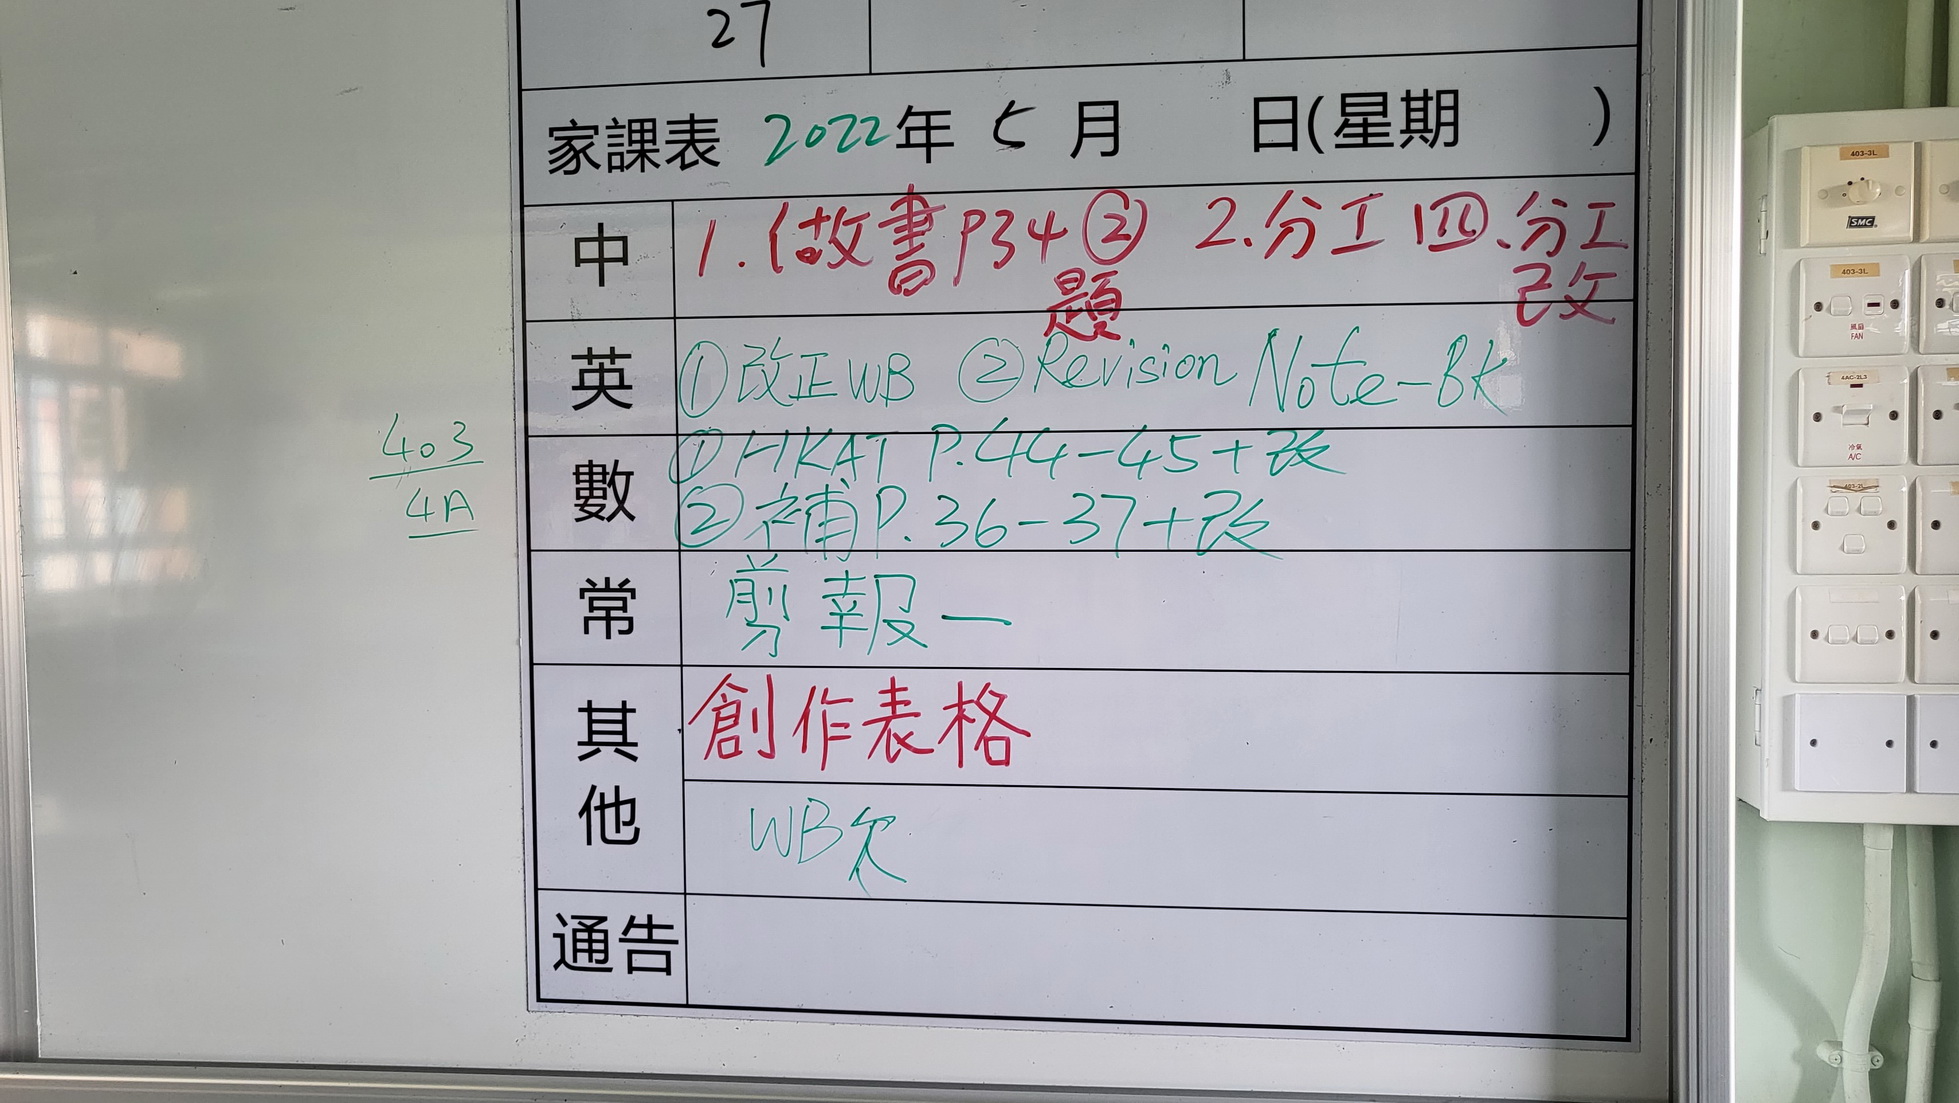 27
家課表 2022年 5 月 日(星期 )
中 1. 做書 P34 ② 2. 分工四、分工
題 改
英 ①改正WB ②Revision Note-Bk
403
4A
數 ①HKAT P.44-45+改
②補P.36-37+改
常 剪報一
其他 創作表格
WB欠
通告
403-3L
SMC
403-3L
風扇
FAN
4AC-2L3
冷氣
A/C
403-2L